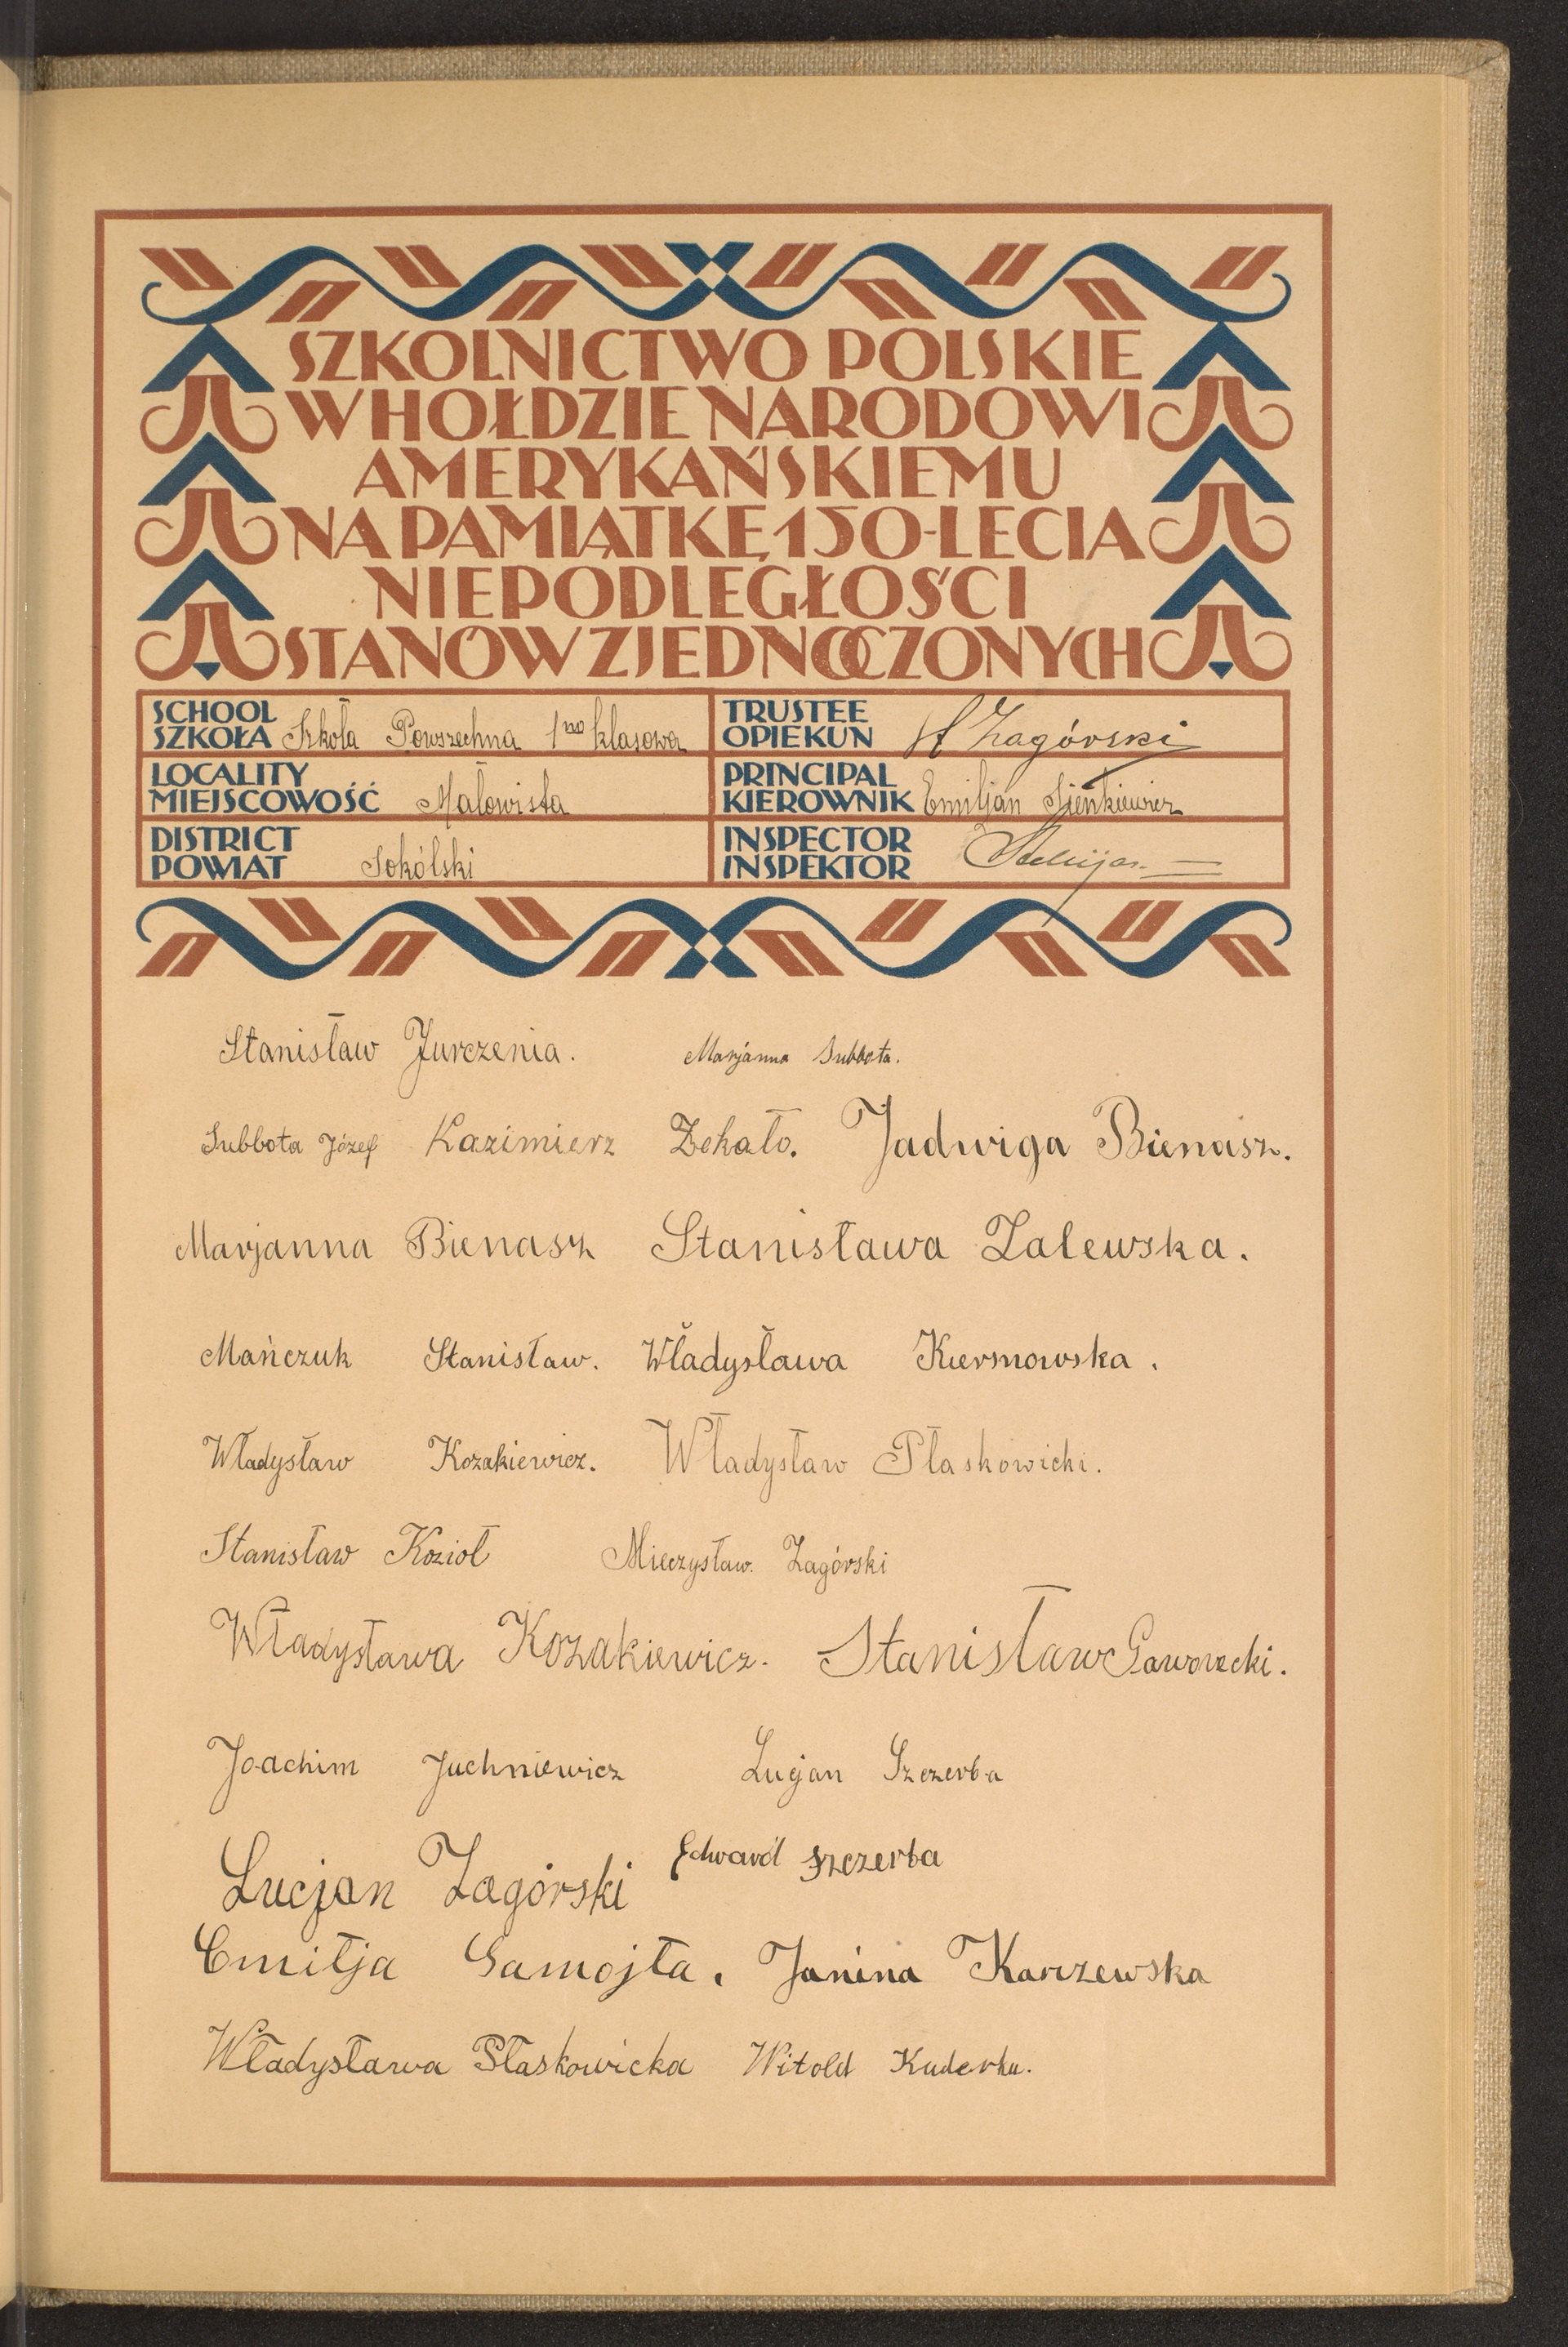 SZKOLNICTWO POLSKIE
W HOŁDZIE NARODOWI
AMERYKAŃSKIEMU
NA PAMIĄTKĘ 150-LECIA
NIEPODLEGŁOŚCI
STANÓW ZJEDNOCZONYCH
SCHOOL
SZKOŁA Szkoła Powszechna 1no klasowa
TRUSTEE
OPIEKUN Zagórski
LOCALITY
MIEJSCOWOŚĆ Małowista
PRINCIPAL
KIEROWNIK Emiljan Sieńkiewicz
DISTRICT
POWIAT Sokólski
INSPECTOR
INSPEKTOR
Stanisław Jurczenia. Marjanna Subbota.
Subbota Józef Kazimierz Żekało. Jadwiga Bienasz.
Marjanna Bienasz Stanisława Zalewska.
Mańczuk Stanisław. Władysława Kiersnowska.
Władysław Kozakiewicz. Władysław Płaskowicki.
Stanisław Kozioł Mieczysław. Zagórski
Władysława Kozakiewicz. Stanisław Gaworecki.
Joachim Juchniewicz Lucjan Szczerba
Lucjan Zagórski Edward Szczerba
Emilja Samojła. Janina Karczewska
Władysława Płaskowicka Witold Kuderka.